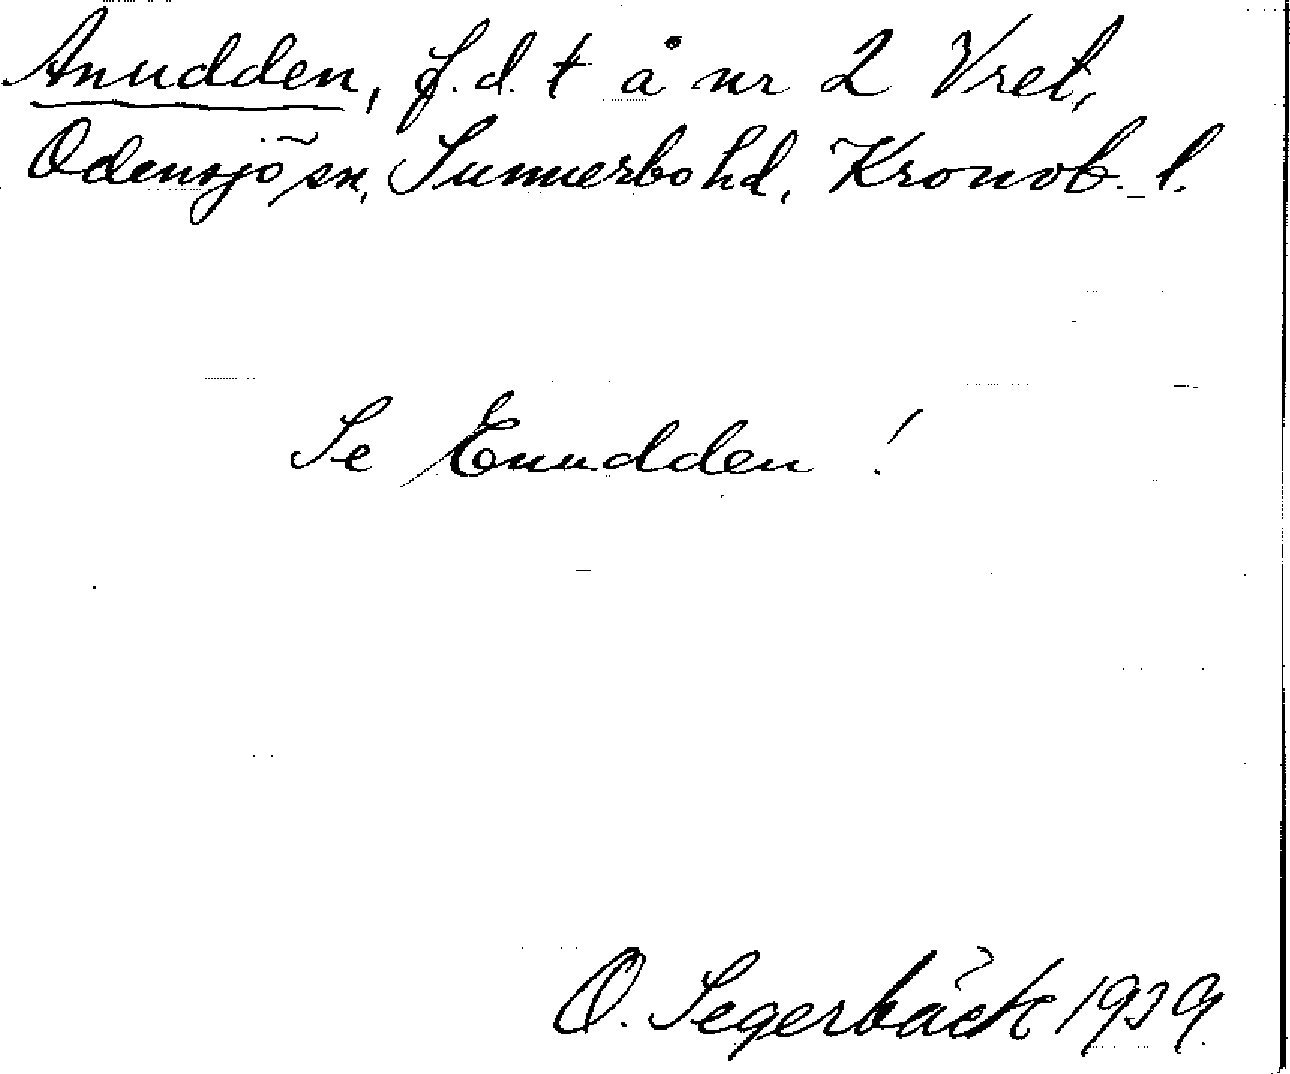 Anudden, f.d. t å nr 2 Vret,
Odensjö sn, Sunnerbo hd, Kronob. l.
Se Enudden!
O. Segerbäck 1939.